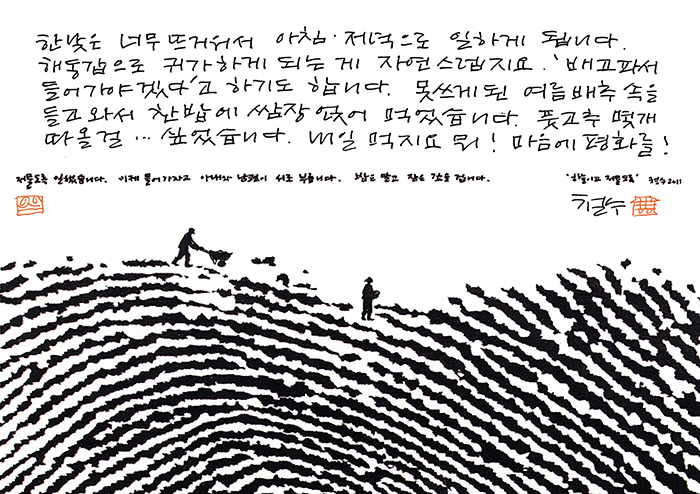 한낮은 너무 뜨거워서 아침·저녁으로 일하게 됩니다.
해동갑으로 귀가하게 되는 게 자연스럽지요. '배고파서
들어가야겠다'고 하기도 합니다. 못쓰게 된 여름배추 속을
들고 와서 찬밥에 쌈장 얹어 먹었습니다. 풋고추 몇개
따올걸 ... 싶었습니다. 내일 먹지요 뭐! 마음에 평화를!
저물도록 일했습니다. 이제 들어가자고 아내와 남편이 서로 부릅니다. 밝은 말고 같은 길을 갑니다.
'하늘이고 저물도록' 철수 2011
철수